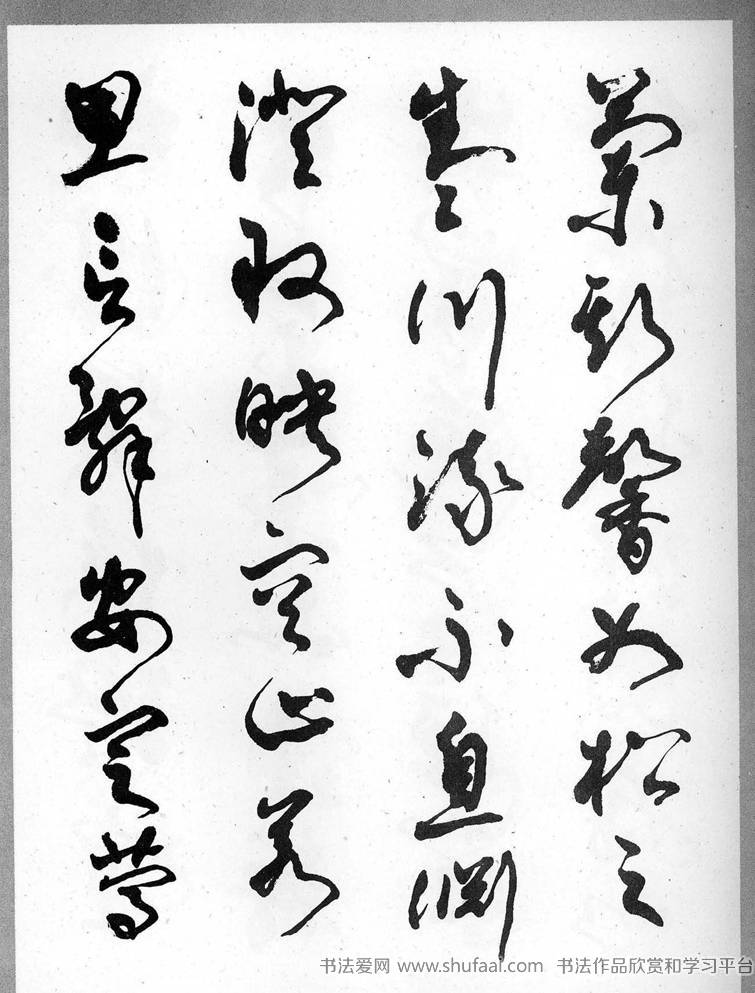 蘭斯馨如松之
盛川流不息淵
澄取映容止若
思言辭安定篤
书法爱网 www.shufaai.com 书法作品欣赏和学习平台